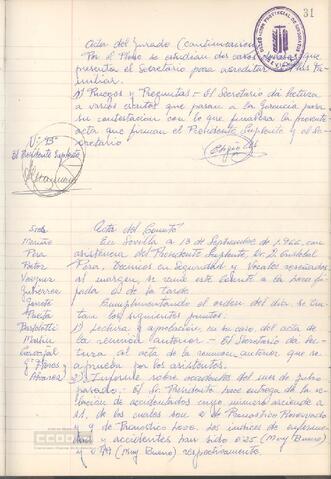 31
Acta del Jurado (continuación)
Por el Pleno se estudian dos casos que
presenta el Secretario para acreditar Fa-
miliar.
2) Ruegos y Preguntas - El Secretario da lectura
a varios escritos que pasan a la Gerencia para
su contestación con lo que finaliza la presente
acta que firman el Presidente Suplente y el Se-
cretario
Vº Bº
El Presidente Suplente
Acta del Comité
En Sevilla a 13 de Septiembre de 1.966, con
asistencia del Presidente Suplente, Sr. D. Cristobal
Pera, Técnicos en Seguridad y Vocales reseñados
al margen, se reune este Comité a la hora fi-
jada de la tarde.
Cumplimentando el orden del dia se tra-
tan los siguientes puntos:
1) Lectura y aprobación, en su caso, del acta de
la reunión anterior - El Secretario da lec-
tura al acta de la reunion anterior que se
aprueba por los asistentes.
2) Informe sobre accidentes del mes de
pasado - El Sr. Presidente hace entrega de la re-
lación de accidentados cuyo número asciende a
11, de los cuales son 2 de Pronostico Reservado
y 9 de Pronostico Leve. Los indices de enferme-
dad y accidentes han sido 0'25 (Muy Bueno)
y (Muy Bueno) respectivamente.
Sres.
Mariño
Pera
Vazquez
Gutierrez
Puerta
Carvajal
Gª Flores
Alvarez
ccoo